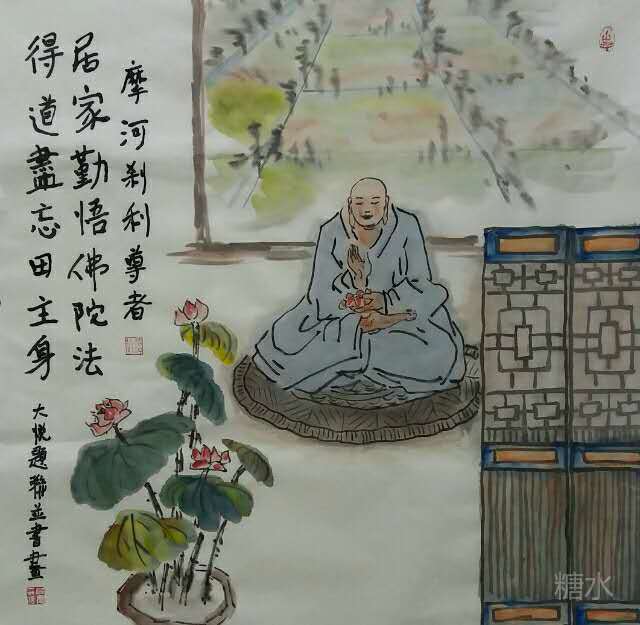 摩河刹利尊者
居家勤悟佛院法
得道盡忘田主身
大悦題聯並書畫
糖水